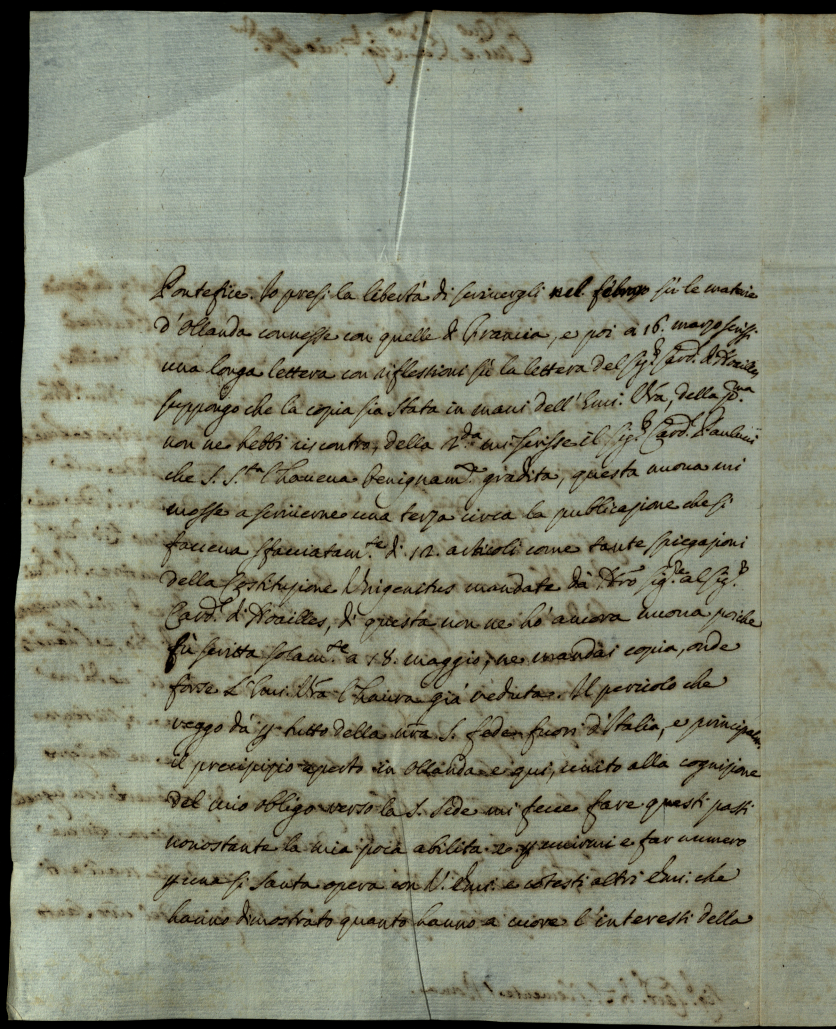 Pontefice. Io presi la libertà di scrivergli nel febrajo sù le materie
d'Ollanda connesse con quelle di Francia, e poi a 16. marzo scrissi
una longa lettera con riflessioni sù la lettera del Sig.r Card. di Noailles
suppongo che la copia sia stata in mani dell'Emi. Vra, della p.ma
non ne hebbi riscontro, della 2.da mi scrisse il Sig.r Card. Paulucci
che S. S.tà l'haveva benignam.te gradita, questa nuova mi
mosse a scriverne una terza circa la publicazione che si
faceva sfacciatam.te di 12. articoli come tante spiegazioni
della Costituzione Unigenitus mandate da Nro Sig.re al Sig.r
Card.l di Noailles, di questa non ne hò ancora nuova poiche
fù scritta solam.te a 18. maggio, ne mandai copia, onde
forse L'Emi. Vra l'haura già veduta. Il pericolo che
veggo da p tutto della nra S. fede fuori d'Italia, e principalm.
il precipizio aperto in Ollanda e qui, unito alla cognizione
del mio obligo verso la S. Sede mi fece fare questi passi
nonostante la mia poca abilita p unirmi e far numero
p una si santa opera con V. Emi. e cotesti altri Emi. che
hanno dimostrato quanto hanno a cuore l'interessi della